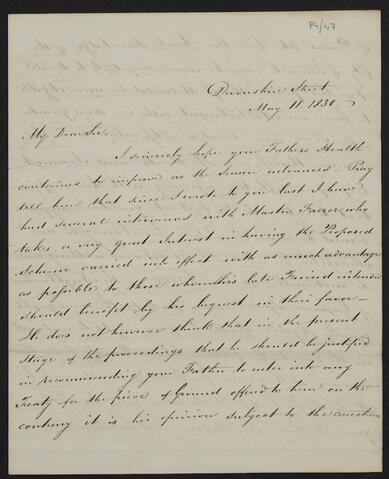 P4/47
Devonshire Street
May 11 1830
My Dear Sir,
I sincerely hope your Fathers Health
continues to improve as the Season advances. Pray
tell him that since I wrote to you last I have
had several interviews with Master Farrer who
takes a very great Interest in having the Proposed
Scheme carried into effect with as much advantage
as possible to those whom his late Friend intended
should benefit by his bequest in their favor—
He does not however think that in the present
Stage of the proceedings that he should be justified
in recommending your Father to enter into any
Treaty for the piece of Ground offered to him on the
contrary it is his opinion subject to the